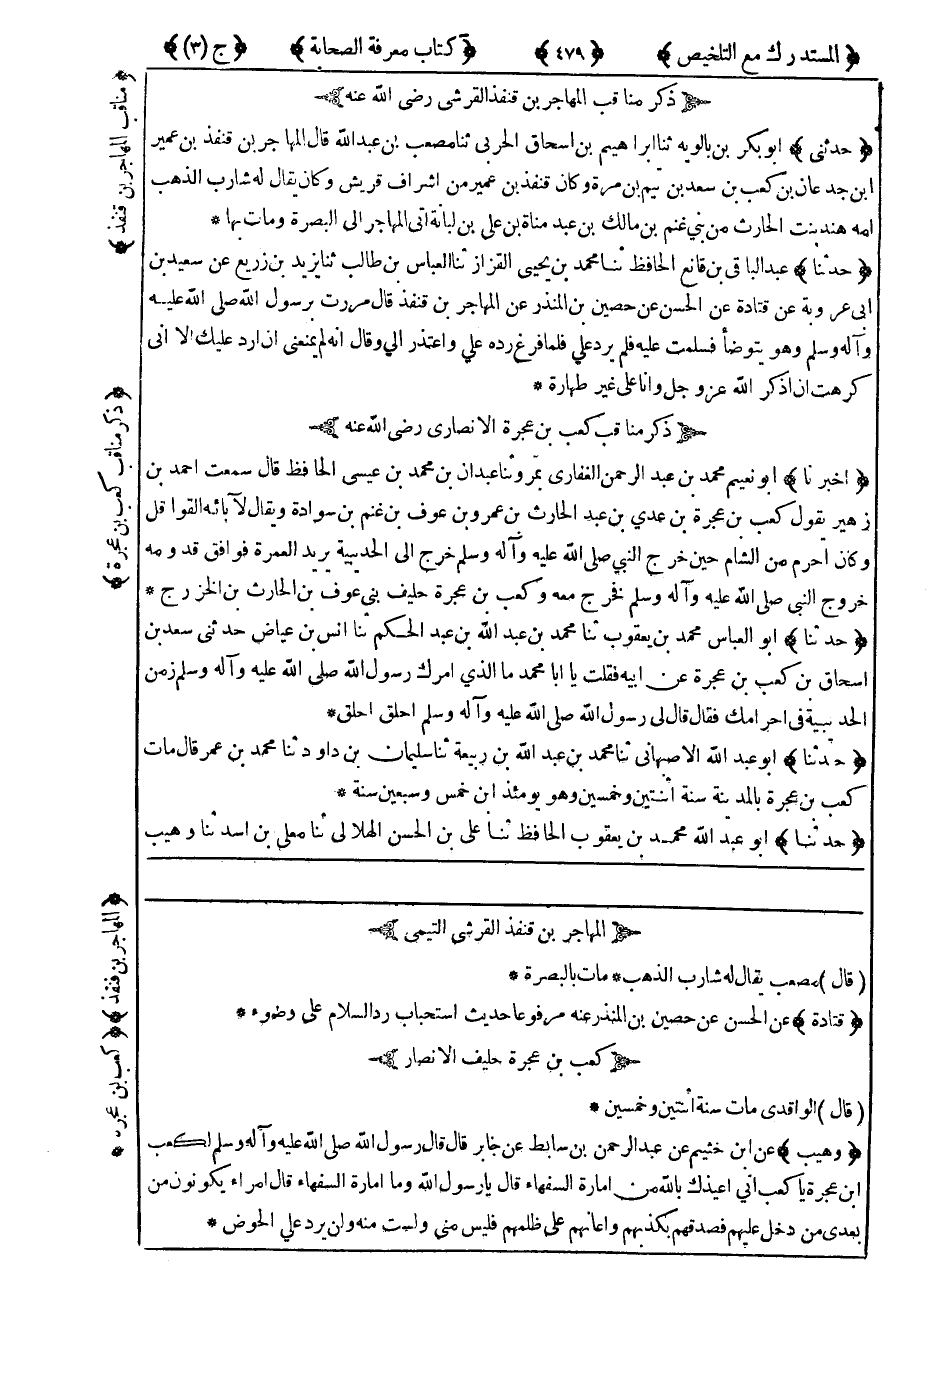 ﴿ المستدرك مع التلخيص ﴾ ﴿ ٤٧٩ ﴾ ﴿ كتاب معرفة الصحابة ﴾ ﴿ ج (٣) ﴾
ذكر مناقب المهاجر بن قنفذ القرشى رضى الله عنه
﴿ حدثنى ﴾ ابو بكر بن بالويه ثنا ابراهيم بن اسحاق الحربى ثنا مصعب بن عبد الله قال المهاجر بن قنفذ بن عمير
ابن جدعان بن كعب بن سعد بن تيم بن مرة وكان قنفذ بن عمير من اشراف قريش وكان يقال له شارب الذهب
امه هند بنت الحارث من بني غنم بن مالك بن عبد مناة بن على بن لبانة اتى المهاجر الى البصرة ومات بها *
﴿ حدثنا ﴾ عبد الباقى بن قانع الحافظ ثنا محمد بن يحيى القزاز ثنا العباس بن طالب ثنا يزيد بن زريع عن سعيد بن
ابى عروبة عن قتادة عن الحسن عن حصين بن المنذر عن المهاجر بن قنفذ قال مررت برسول الله صلى الله عليه
وآله وسلم وهو يتوضأ فسلمت عليه فلم يرد علي فلما فرغ رده علي واعتذر الي وقال انه لم يمنعنى ان ارد عليك الا انى
كرهت ان اذكر الله عز وجل وانا على غير طهارة *
ذكر مناقب كعب بن عجرة الانصارى رضى الله عنه
﴿ اخبرنا ﴾ ابو نعيم محمد بن عبد الرحمن الغفارى بمرو ثنا عبدان بن محمد بن عيسى الحافظ قال سمعت احمد بن
زهير يقول كعب بن عجرة بن عدي بن عبد الحارث بن عمرو بن عوف بن غنم بن سوادة ويقال لآبائه القواقل
وكان احرم من الشام حين خرج النبي صلى الله عليه وآله وسلم خرج الى الحديبية يريد العمرة فوافق قدومه
خروج النبى صلى الله عليه وآله وسلم فخرج معه وكعب بن عجرة حليف بنى عوف بن الحارث بن الخزرج *
﴿ حدثنا ﴾ ابو العباس محمد بن يعقوب ثنا محمد بن عبد الله بن عبد الحكم ثنا انس بن عياض حدثنى سعد بن
اسحاق بن كعب بن عجرة عن ابيه فقلت يا ابا محمد ما الذي امرك رسول الله صلى الله عليه وآله وسلم زمن
الحديبية فى احرامك فقال قال لى رسول الله صلى الله عليه وآله وسلم احلق احلق *
﴿ حدثنا ﴾ ابو عبد الله الاصبهانى ثنا محمد بن عبد الله بن ربيعة ثنا سليمان بن داود ثنا محمد بن عمر قال مات
كعب بن عجرة بالمدينة سنة اثنتين وخمسين وهو يومئذ ابن خمس وسبعين سنة *
﴿ حدثنا ﴾ ابو عبد الله محمد بن يعقوب الحافظ ثنا على بن الحسن الهلالى ثنا معلى بن اسد ثنا وهيب
المهاجر بن قنفذ القرشى التيمى
( قال ) مصعب يقال له شارب الذهب * مات بالبصرة *
﴿ قتادة ﴾ عن الحسن عن حصين بن المنذر عنه مرفوعا حديث استحباب رد السلام على وضوء *
كعب بن عجرة حليف الانصار
( قال ) الواقدى مات سنة اثنتين وخمسين *
﴿ وهيب ﴾ عن ابن خثيم عن عبد الرحمن بن سابط عن جابر قال قال رسول الله صلى الله عليه وآله وسلم لكعب
ابن عجرة يا كعب انى اعيذك بالله من امارة السفهاء قال يا رسول الله وما امارة السفهاء قال امراء يكونون من
بعدى من دخل عليهم فصدقهم بكذبهم واعانهم على ظلمهم فليس مني ولست منه ولن يرد علي الحوض *
﴿ مناقب المهاجر بن قنفذ ﴾
﴿ ذكر مناقب كعب بن عجرة ﴾
﴿ المهاجر بن قنفذ ﴾ ﴿ كعب بن عجره *